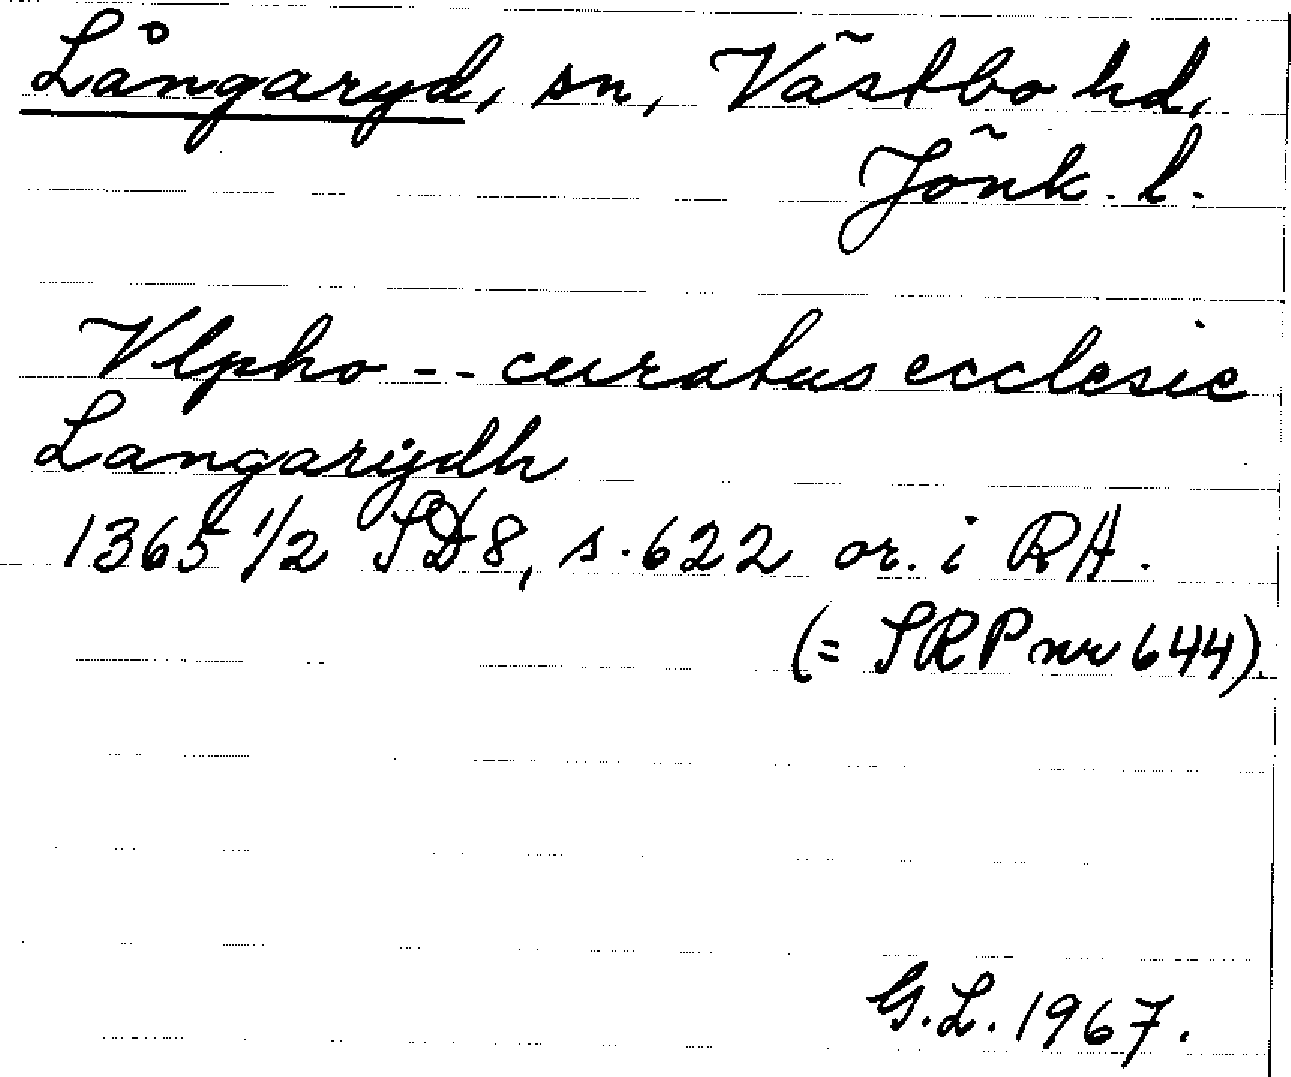 Långaryd, sn, Västbo hd,
Jönk. l.
Vlpho -- curatus ecclesie
Langarydh
1365 1/2 SD8, s. 622 or. i RA.
(= SRP nr 644).
G.L. 1967.